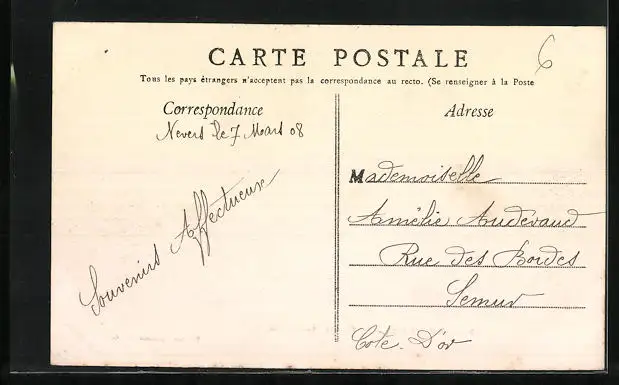 CARTE POSTALE
6
Tous les pays étrangers n'acceptent pas la correspondance au recto. (Se renseigner à la Poste
Correspondance
Nevers le 7 Mars 08
Souvenirs Affectueux
Adresse
Mademoiselle
Amélie Audevaud
Rue des Bordes
Semur
Côte-D'or